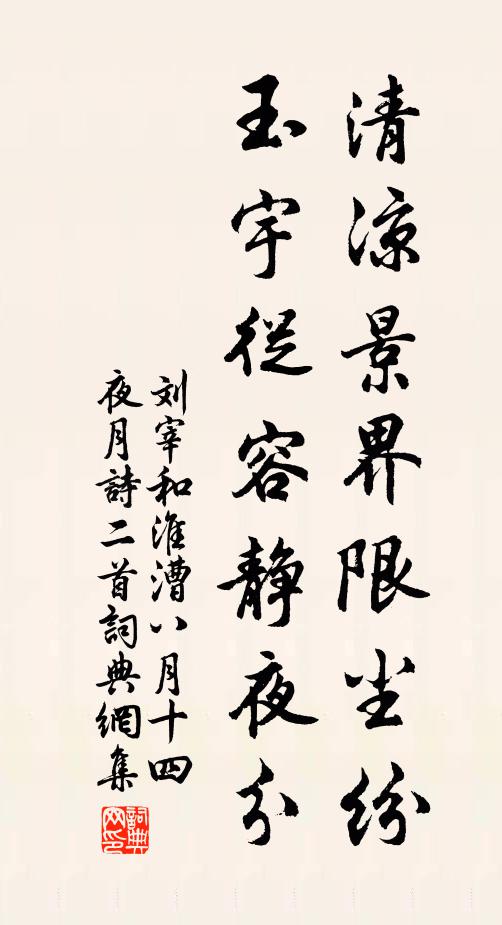 清凉景界限尘纷
玉宇從容静夜分
刘宰和淮漕八月十四
夜月詩二首詞典網集
詞典
网印